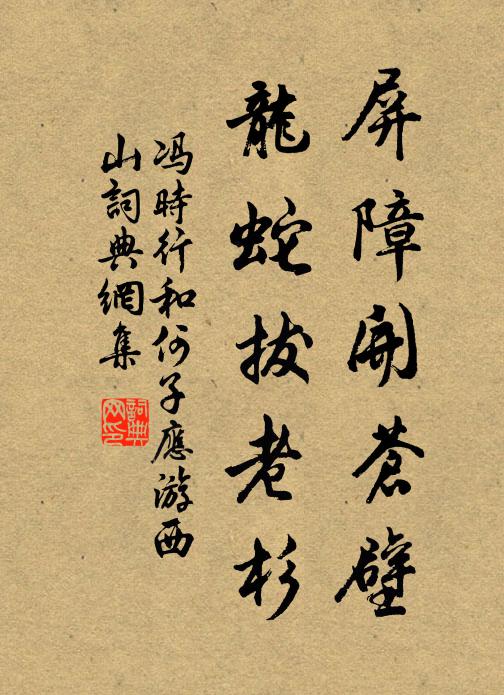 屏障開蒼壁
龍蛇拔老杉
馮時行和何子應游西
山詞典網集
詞典网印